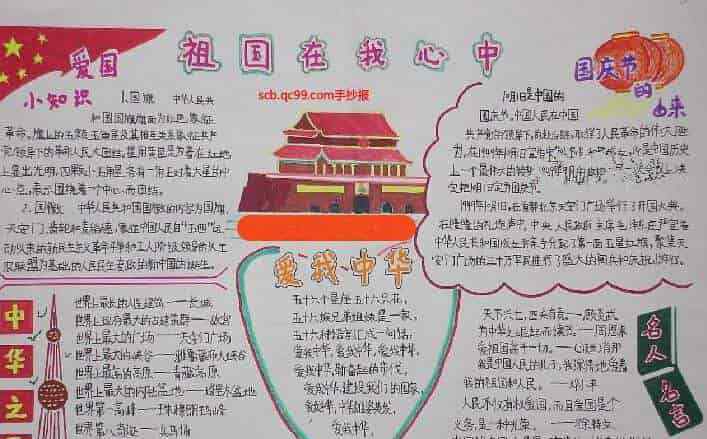 祖国在我心中
scb.qc99.com手抄报
爱国
小知识
1.国旗 中华人民共
和国国旗旗面为红色,象征
革命。旗上的五颗五角星及其相互关系象征共产
党领导下的革命人民大团结。
上显出光明,四颗小五角星各有一角正对着大星的中
心点,表示围绕着一个中心而团结。
2.国徽 中华人民共和国国徽的内容为国旗、
天安门、齿轮和麦稻穗,象征中国人民自“五四”运
动以来的新民主主义革命斗争和工人阶级领导的以工
农联盟为基础的人民民主专政的新中国的诞生。
国庆节
的
由来
10月1日是中国的
国庆节。中国人民在中国
共产党的领导下,
上一个最伟大的转变
定把10月1日定为国庆节。
1949年10月1日,在首都北京天安门广场举行了开国大典。
在隆隆的礼炮声中,中央人民政府主席毛泽东庄严宣告
中华人民共和国成立并亲手升起了第一面五星红旗。聚集天
安门广场的三十万军民进行了盛大的阅兵和庆祝游行。
爱我中华
五十六个星座五十六只花,
五十六族兄弟姐妹是一家,
五十六种语言汇成一句话,
爱我中华,爱我中华,爱我中华。
爱我中华,
爱我中华,建设我们的国家,
爱我中华,
爱我中华
中
华
之
世界上最长的人造建筑——长城
世界上现存最大的古建筑群——故宫
世界上最大的广场——天安门广场
世界上最大的峡谷——雅鲁藏布大峡谷
世界上最高的高原——青藏高原
世界上最大的内陆盆地——塔里木盆地
世界第一高峰——珠穆朗玛峰
世界八奇迹——兵马俑
名人
名言
天下兴亡,匹夫有责。——顾炎武
为中华之崛起而读书。——周恩来
爱祖国高于一切。——肖邦
我是中国人民的儿子,我深情地爱着
我的祖国和人民。——邓小平
人民不仅有权爱国,而且爱国是个义
务,是一种光荣。——徐特立